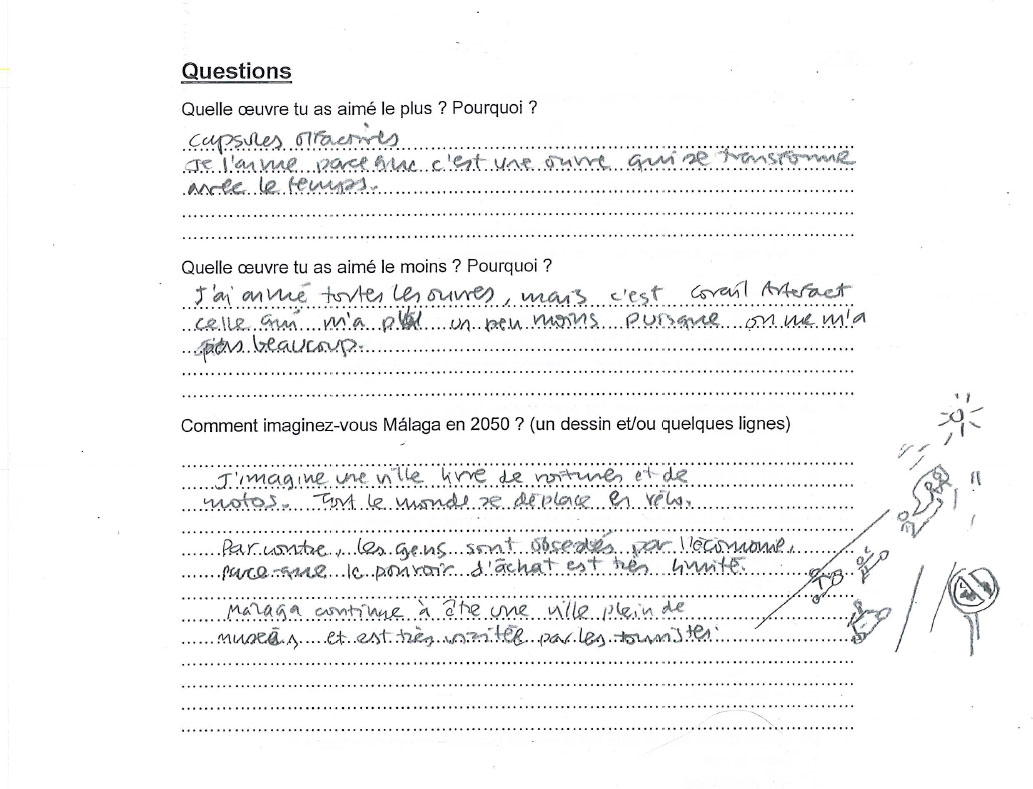 Questions
Quelle œuvre tu as aimé le plus ? Pourquoi ?
Capsules olfactives
Je l'aime parce que c'est une ouvre qui se transforme
avec le temps.
Quelle œuvre tu as aimé le moins ? Pourquoi ?
J'ai aimé toutes les ouvres, mais c'est Corail Artefact
celle qui m'a plu un peu moins puisque on ne m'a
pas beaucoup.
Comment imaginez-vous Málaga en 2050 ? (un dessin et/ou quelques lignes)
J'imagine une ville livre de voitures et de
motos. Tout le monde se déplace en vélo.
Par contre, les gens sont obsedés par l'économie,
parce-que le pouvoir d'âchat est très limité.
Málaga continue à être une ville plein de
museés et est très visitée par les touristes.